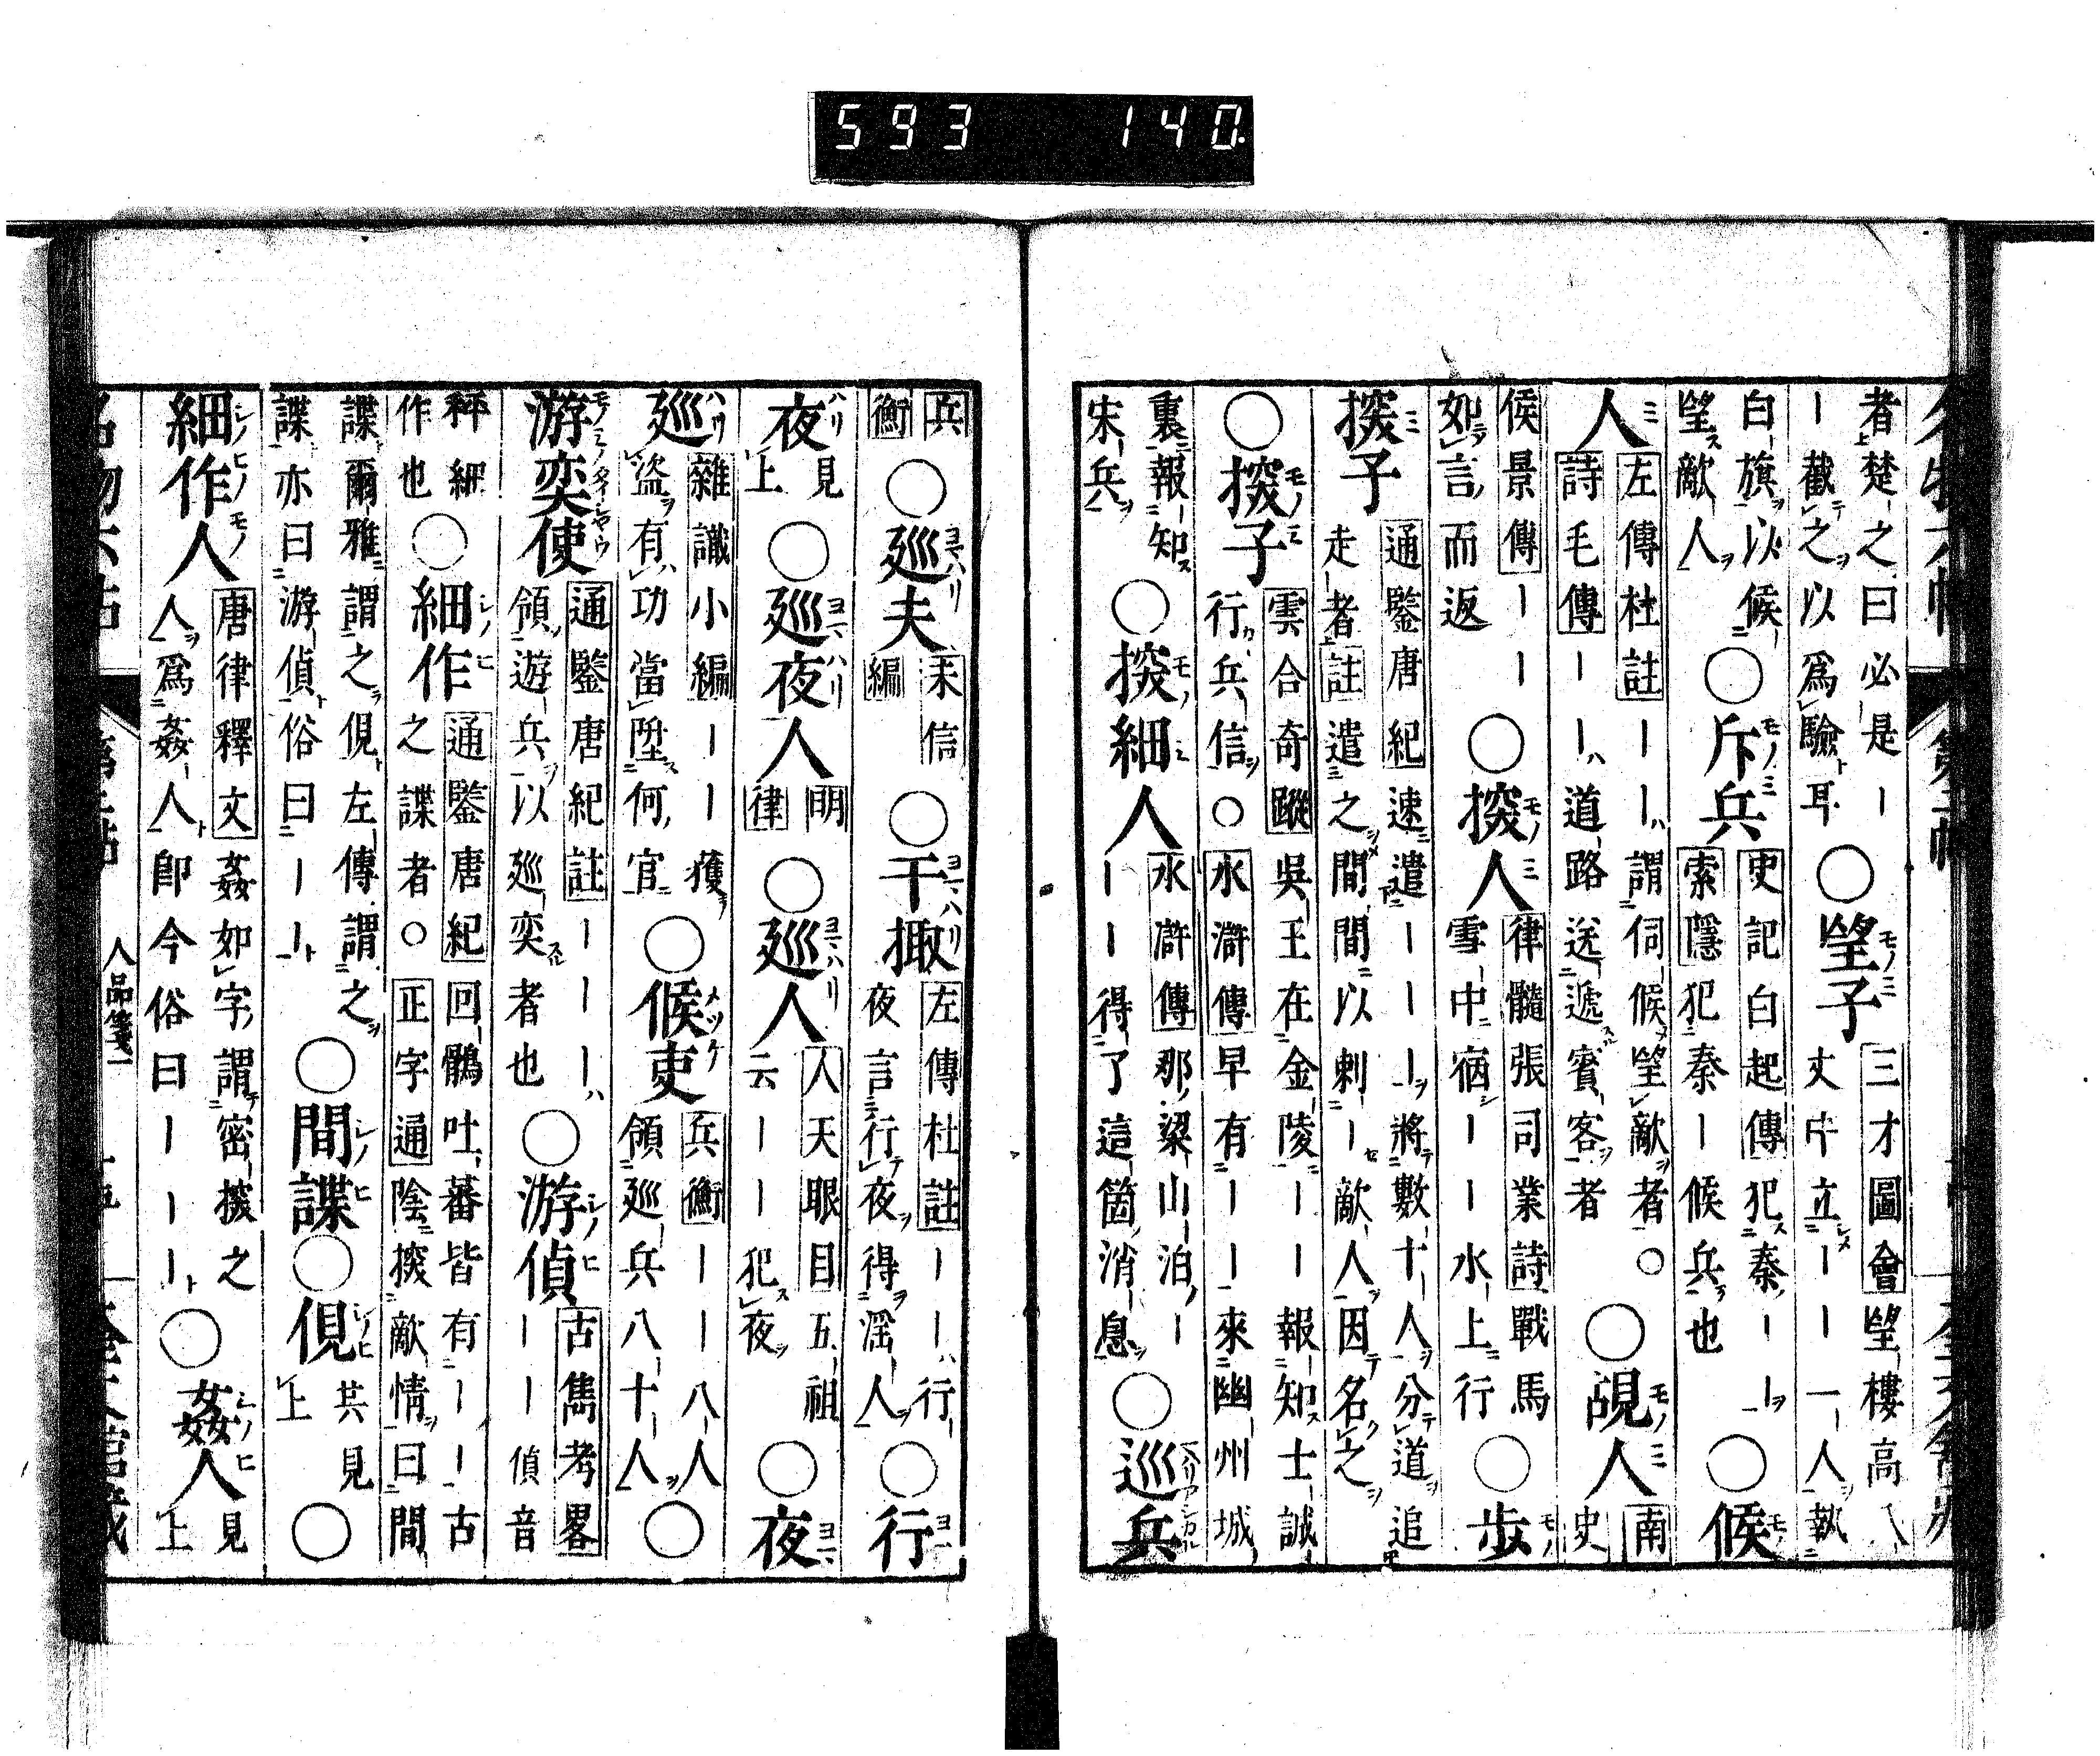 者楚之曰必是ー
ー截之以爲驗耳
○望子
三才圖會望樓高八
丈中立ーー一人執
白旗以候
望敵人
○斥兵
史記白起傳犯秦ーー
索隱犯秦ー候兵也
○候
人
左傳杜註ーー謂伺候望敵者○
詩毛傳ーー道路送遞賓客者
○覘人
南
史
侯景傳ーー
如言而返
○探人
律髓張司業詩戰馬
雪中宿ーー水上行
○步
探子
通鑒唐紀速遣ーーー將數十人分道追
走者註遣之間間以刺ー敵人因名之
○探子
雲合奇蹤吳王在金陵ーー報知士誠
行兵信○水滸傳早有ーー來幽州城
裏報知
宋兵
○探細人
水滸傳那梁山泊ー
ーー得了這箇消息
○巡兵
兵
衡
○巡夫
耒信
編
○干掫
左傳杜註ーー行
夜言行夜得淫人
○行
夜
見
上
○巡夜人
明
律
○巡人
人天眼目五祖
云ーー犯夜
○夜
巡
雜識小編ーー獲
盜有功當陞何官
○候吏
兵衡ーー八人
領巡兵八十人
○
游奕使
通鑒唐紀註ーーー
領遊兵以巡奕者也
○游偵
古雋考畧
ーー偵音
秤細
作也
○細作
通鑒唐紀回鶻吐蕃皆有ーー古
之諜者○正字通陰探敵情曰間
諜爾雅謂之俔左傳謂之
諜亦曰游偵俗曰ーー
○間諜○俔
共見
上
○
細作人
唐律釋文姦如字謂密探之
人爲姦人即今俗曰ーーー
○姦人
見
上
人品箋二
593 140